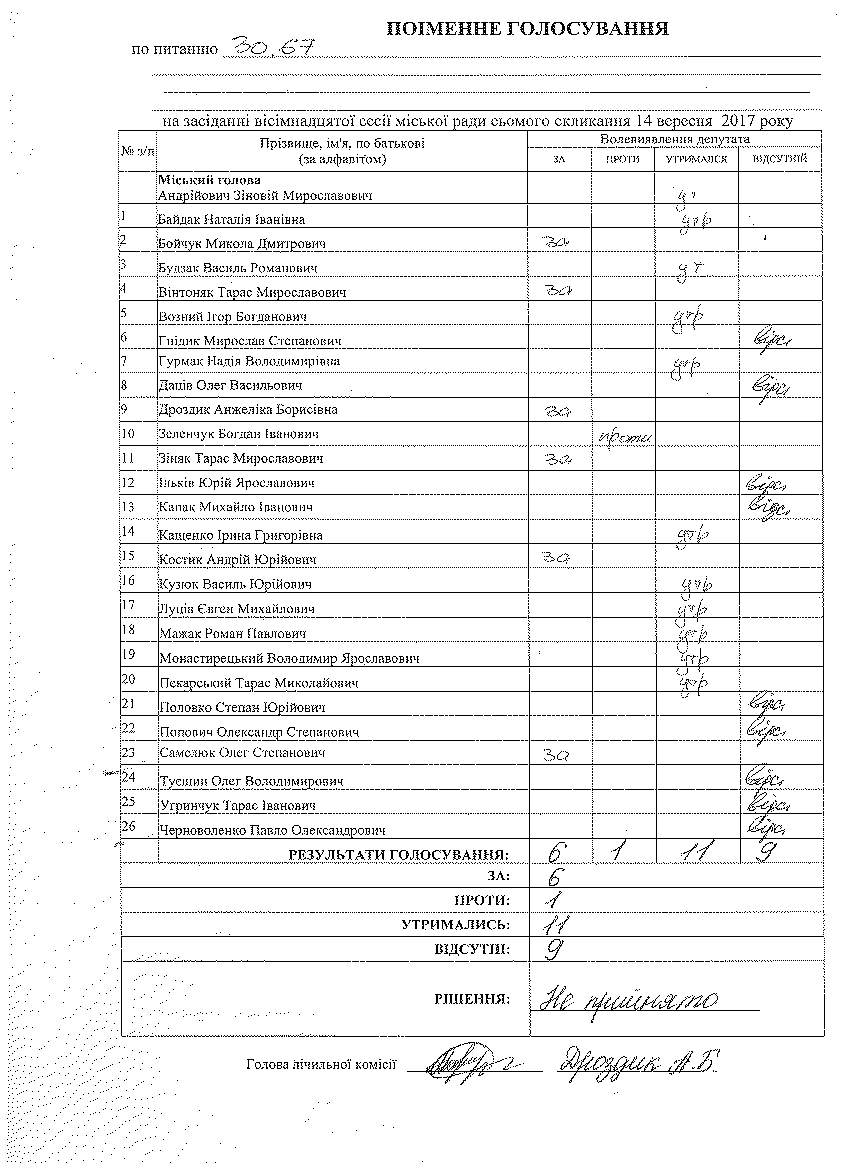 ПОІМЕННЕ ГОЛОСУВАННЯ
по питанню 30.67
на засіданні вісімнадцятої сесії міської ради сьомого скликання 14 вересня 2017 року
№ з/п Прізвище, ім'я, по батькові (за алфавітом) Волевиявлення депутата
ЗА ПРОТИ УТРИМАВСЯ ВІДСУТНІЙ
Міський голова
Андрійович Зіновій Мирославович ут
1 Байдак Наталія Іванівна утр
2 Бойчук Микола Дмитрович за
3 Будзак Василь Романович ут
4 Вінтоняк Тарас Мирославович за
5 Возний Ігор Богданович утр
6 Гнідик Мирослав Степанович відс
7 Гурмак Надія Володимирівна утр
8 Даців Олег Васильович відс
9 Дроздик Анжеліка Борисівна за
10 Зеленчук Богдан Іванович проти
11 Зіняк Тарас Мирославович за
12 Іньків Юрій Ярославович відс
13 Капак Михайло Іванович відс
14 Кащенко Ірина Григорівна утр
15 Костик Андрій Юрійович за
16 Кузюк Василь Юрійович утр
17 Луців Євген Михайлович утр
18 Мажак Роман Павлович утр
19 Монастирецький Володимир Ярославович утр
20 Пекарський Тарас Миколайович утр
21 Половко Степан Юрійович відс
22 Попович Олександр Степанович відс
23 Самелюк Олег Степанович за
24 Туєшин Олег Володимирович відс
25 Угринчук Тарас Іванович відс
26 Черноволенко Павло Олександрович відс
РЕЗУЛЬТАТИ ГОЛОСУВАННЯ: 6 1 11 9
ЗА: 6
ПРОТИ: 1
УТРИМАЛИСЬ: 11
ВІДСУТНІ: 9
РІШЕННЯ: Не прийнято
Голова лічильної комісії Дроздик А.Б.